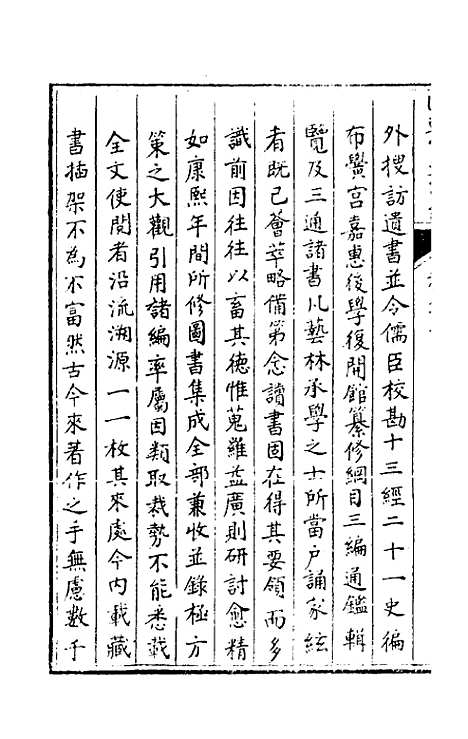 外搜訪遺書並令儒臣校勘十三經二十一史徧
布黌宮嘉惠後學復開館纂修綱目三編通鑑輯
覽及三通諸書凡藝林承學之士所當户誦家絃
者既已薈萃略備第念讀書固在得其要領而多
識前因往往以畜其德惟蒐羅益廣則研討愈精
如康熙年間所修圖書集成全部兼收並錄極方
策之大觀引用諸編率屬因類取裁勢不能悉載
全文使閱者沿流溯源一一枚其來處今内載藏
書插架不為不富然古今來著作之手無慮數千